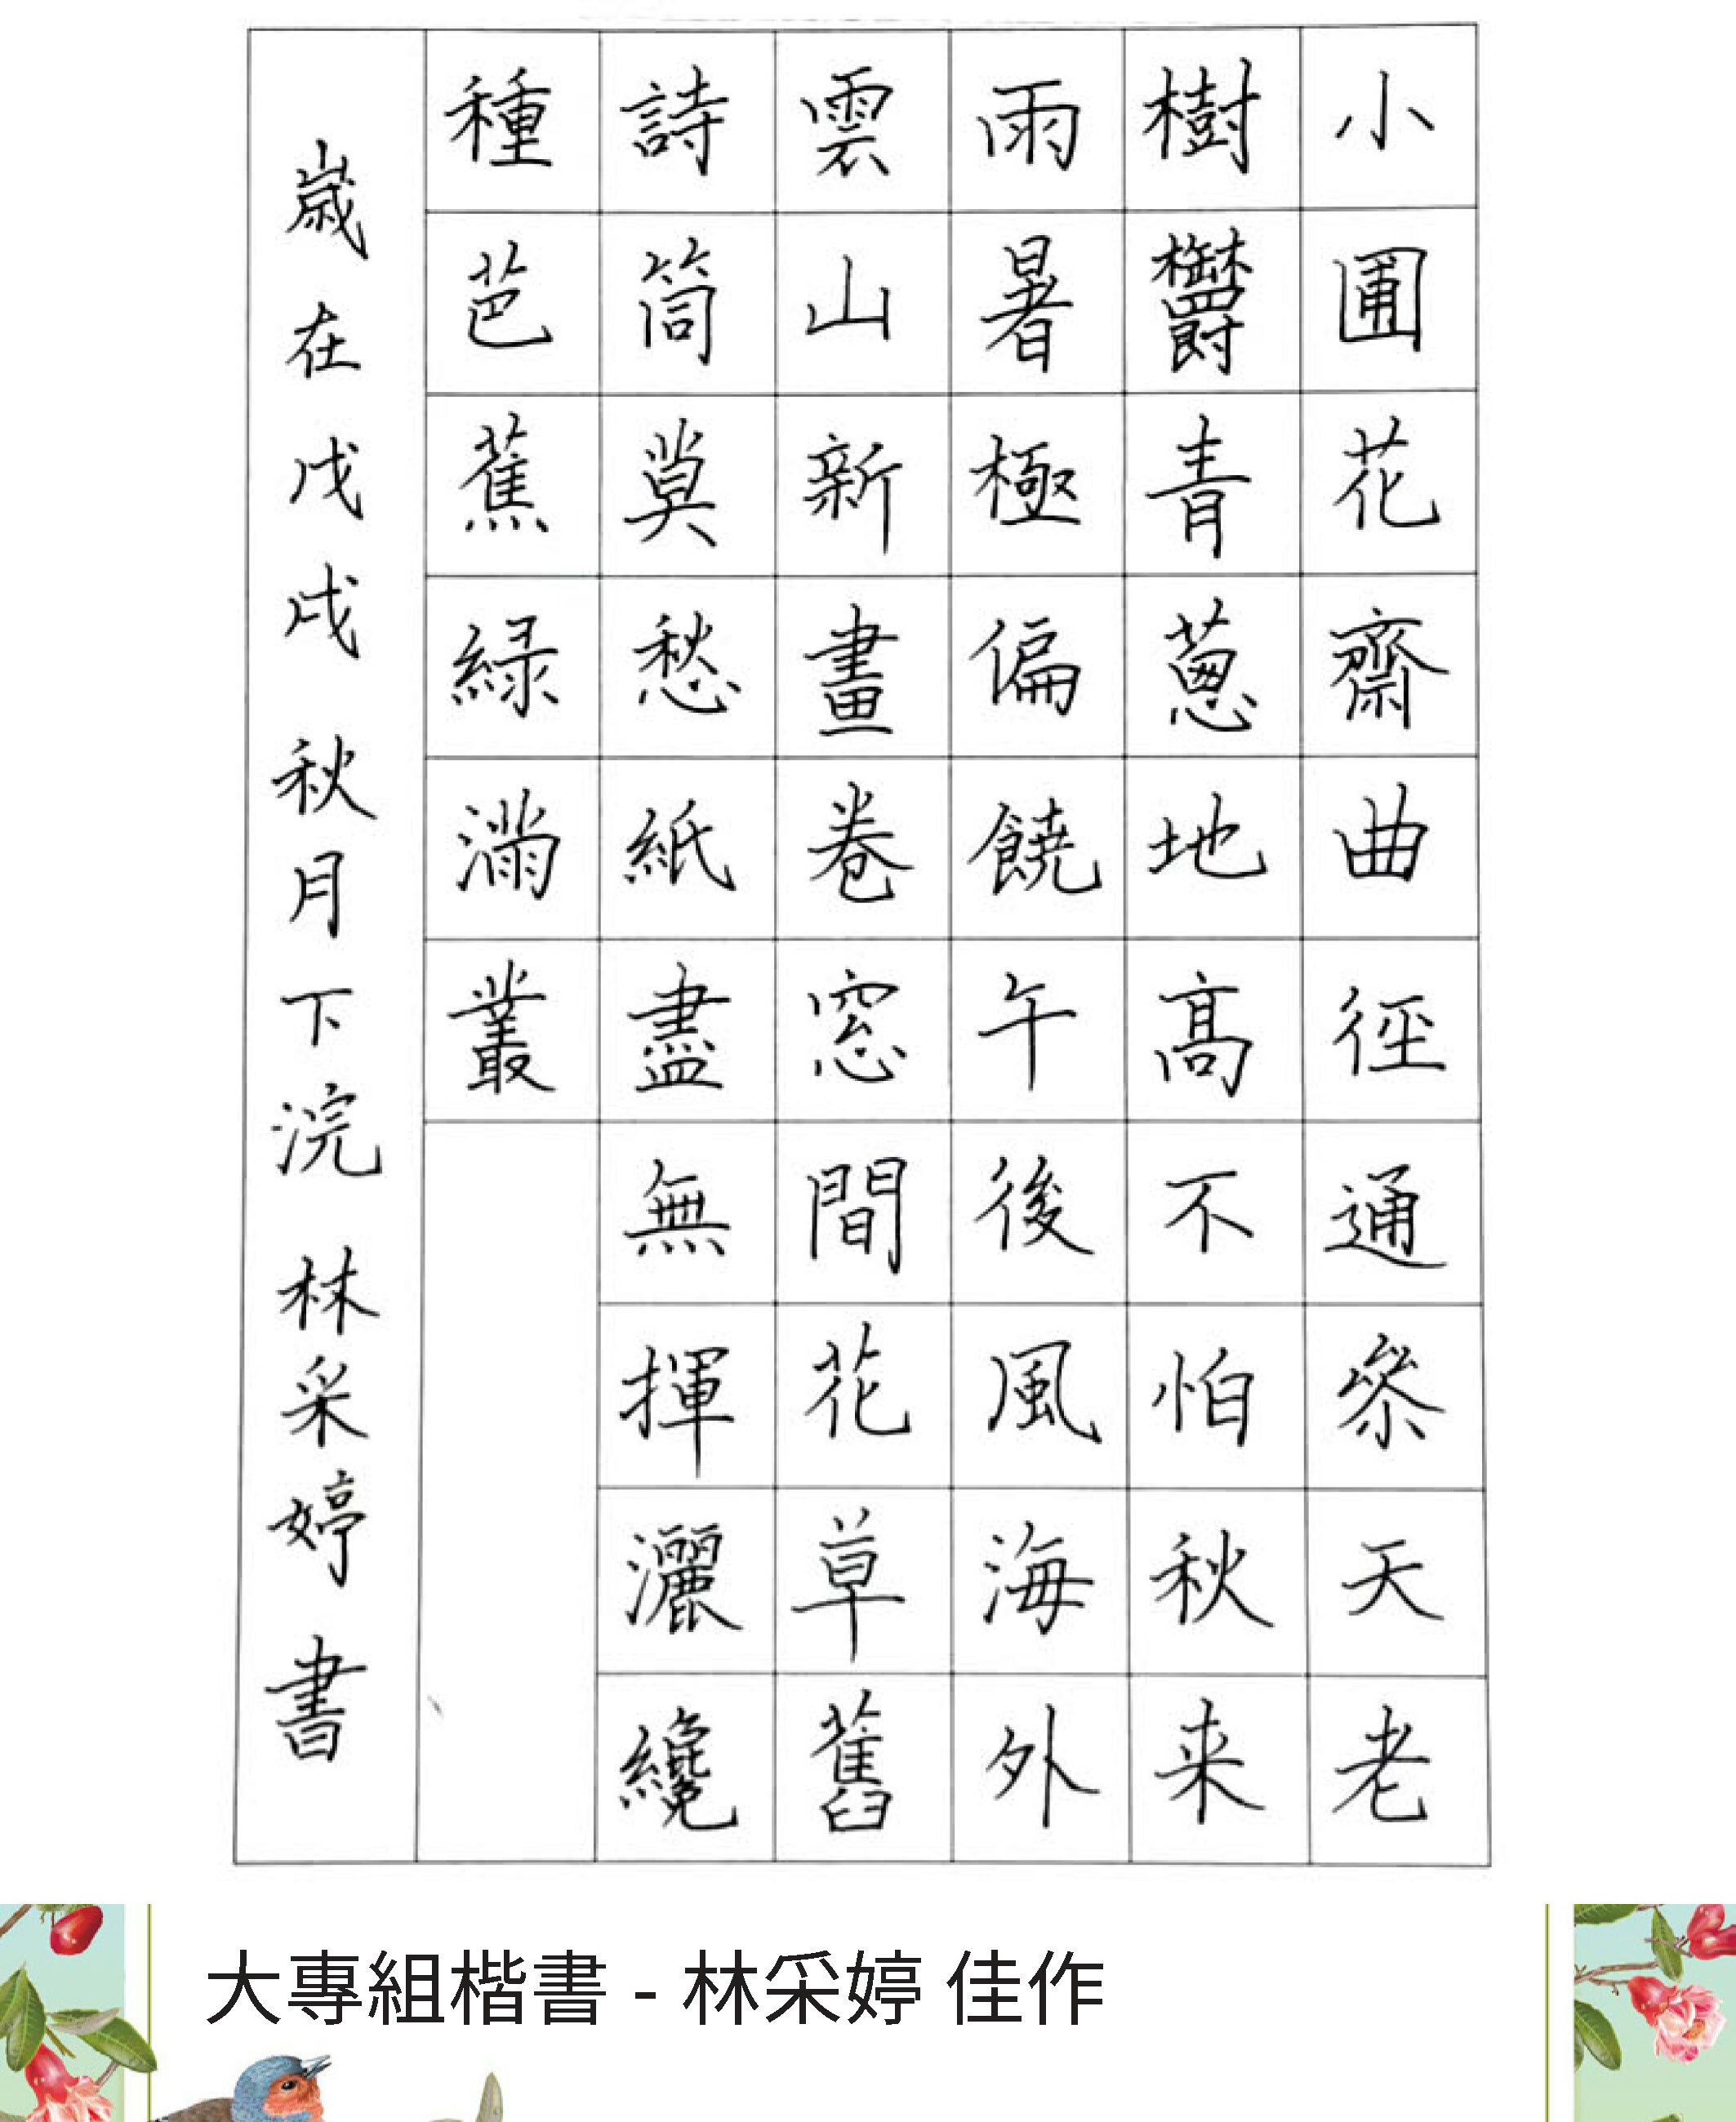 小圃花齋曲徑通參天老
樹欝青蔥地高不怕秋来
雨暑極偏饒午後風海外
雲山新畫卷窓間花草舊
詩筒莫愁紙盡無揮灑纔
種芭蕉緑滿叢
歲在戊戌秋月下浣林采婷書
大專組楷書 - 林采婷 佳作